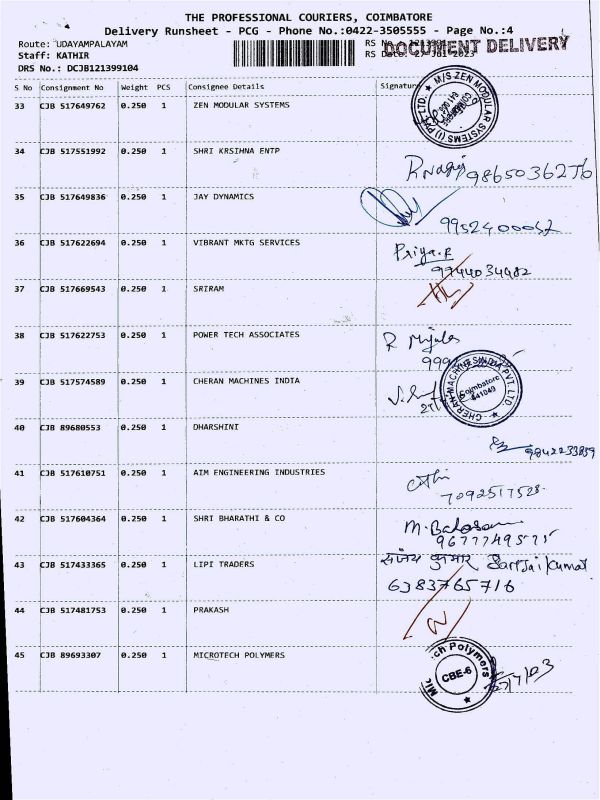 THE PROFESSIONAL COURIERS, COIMBATORE
Delivery Runsheet - PCG - Phone No.:0422-3505555 - Page No.:4
Route: UDAYAMPALAYAM
RS No.
DOCUMENT DELIVERY
Staff: KATHIR
RS Date: 27 Jul 2023
DRS No.: DCJB121399104
S No Consignment No Weight PCS Consignee Details Signature
33 CJB 517649762 0.250 1 ZEN MODULAR SYSTEMS
M/S ZEN MODULAR SYSTEMS (I) PVT. LTD.
34 CJB 517551992 0.250 1 SHRI KRSIHNA ENTP
35 CJB 517649836 0.250 1 JAY DYNAMICS
36 CJB 517622694 0.250 1 VIBRANT MKTG SERVICES
Priya.R
9944034482
37 CJB 517669543 0.250 1 SRIRAM
38 CJB 517622753 0.250 1 POWER TECH ASSOCIATES
39 CJB 517574589 0.250 1 CHERAN MACHINES INDIA
CHERAN MACHINES INDIA PVT. LTD.
Coimbatore
641049
40 CJB 89680553 0.250 1 DHARSHINI
9842233859
41 CJB 517610751 0.250 1 AIM ENGINEERING INDUSTRIES
7092517528
42 CJB 517604364 0.250 1 SHRI BHARATHI & CO
43 CJB 517433365 0.250 1 LIPI TRADERS
कुमार
6383765716
44 CJB 517481753 0.250 1 PRAKASH
45 CJB 89693307 0.250 1 MICROTECH POLYMERS
ch Polymers
CBE-6